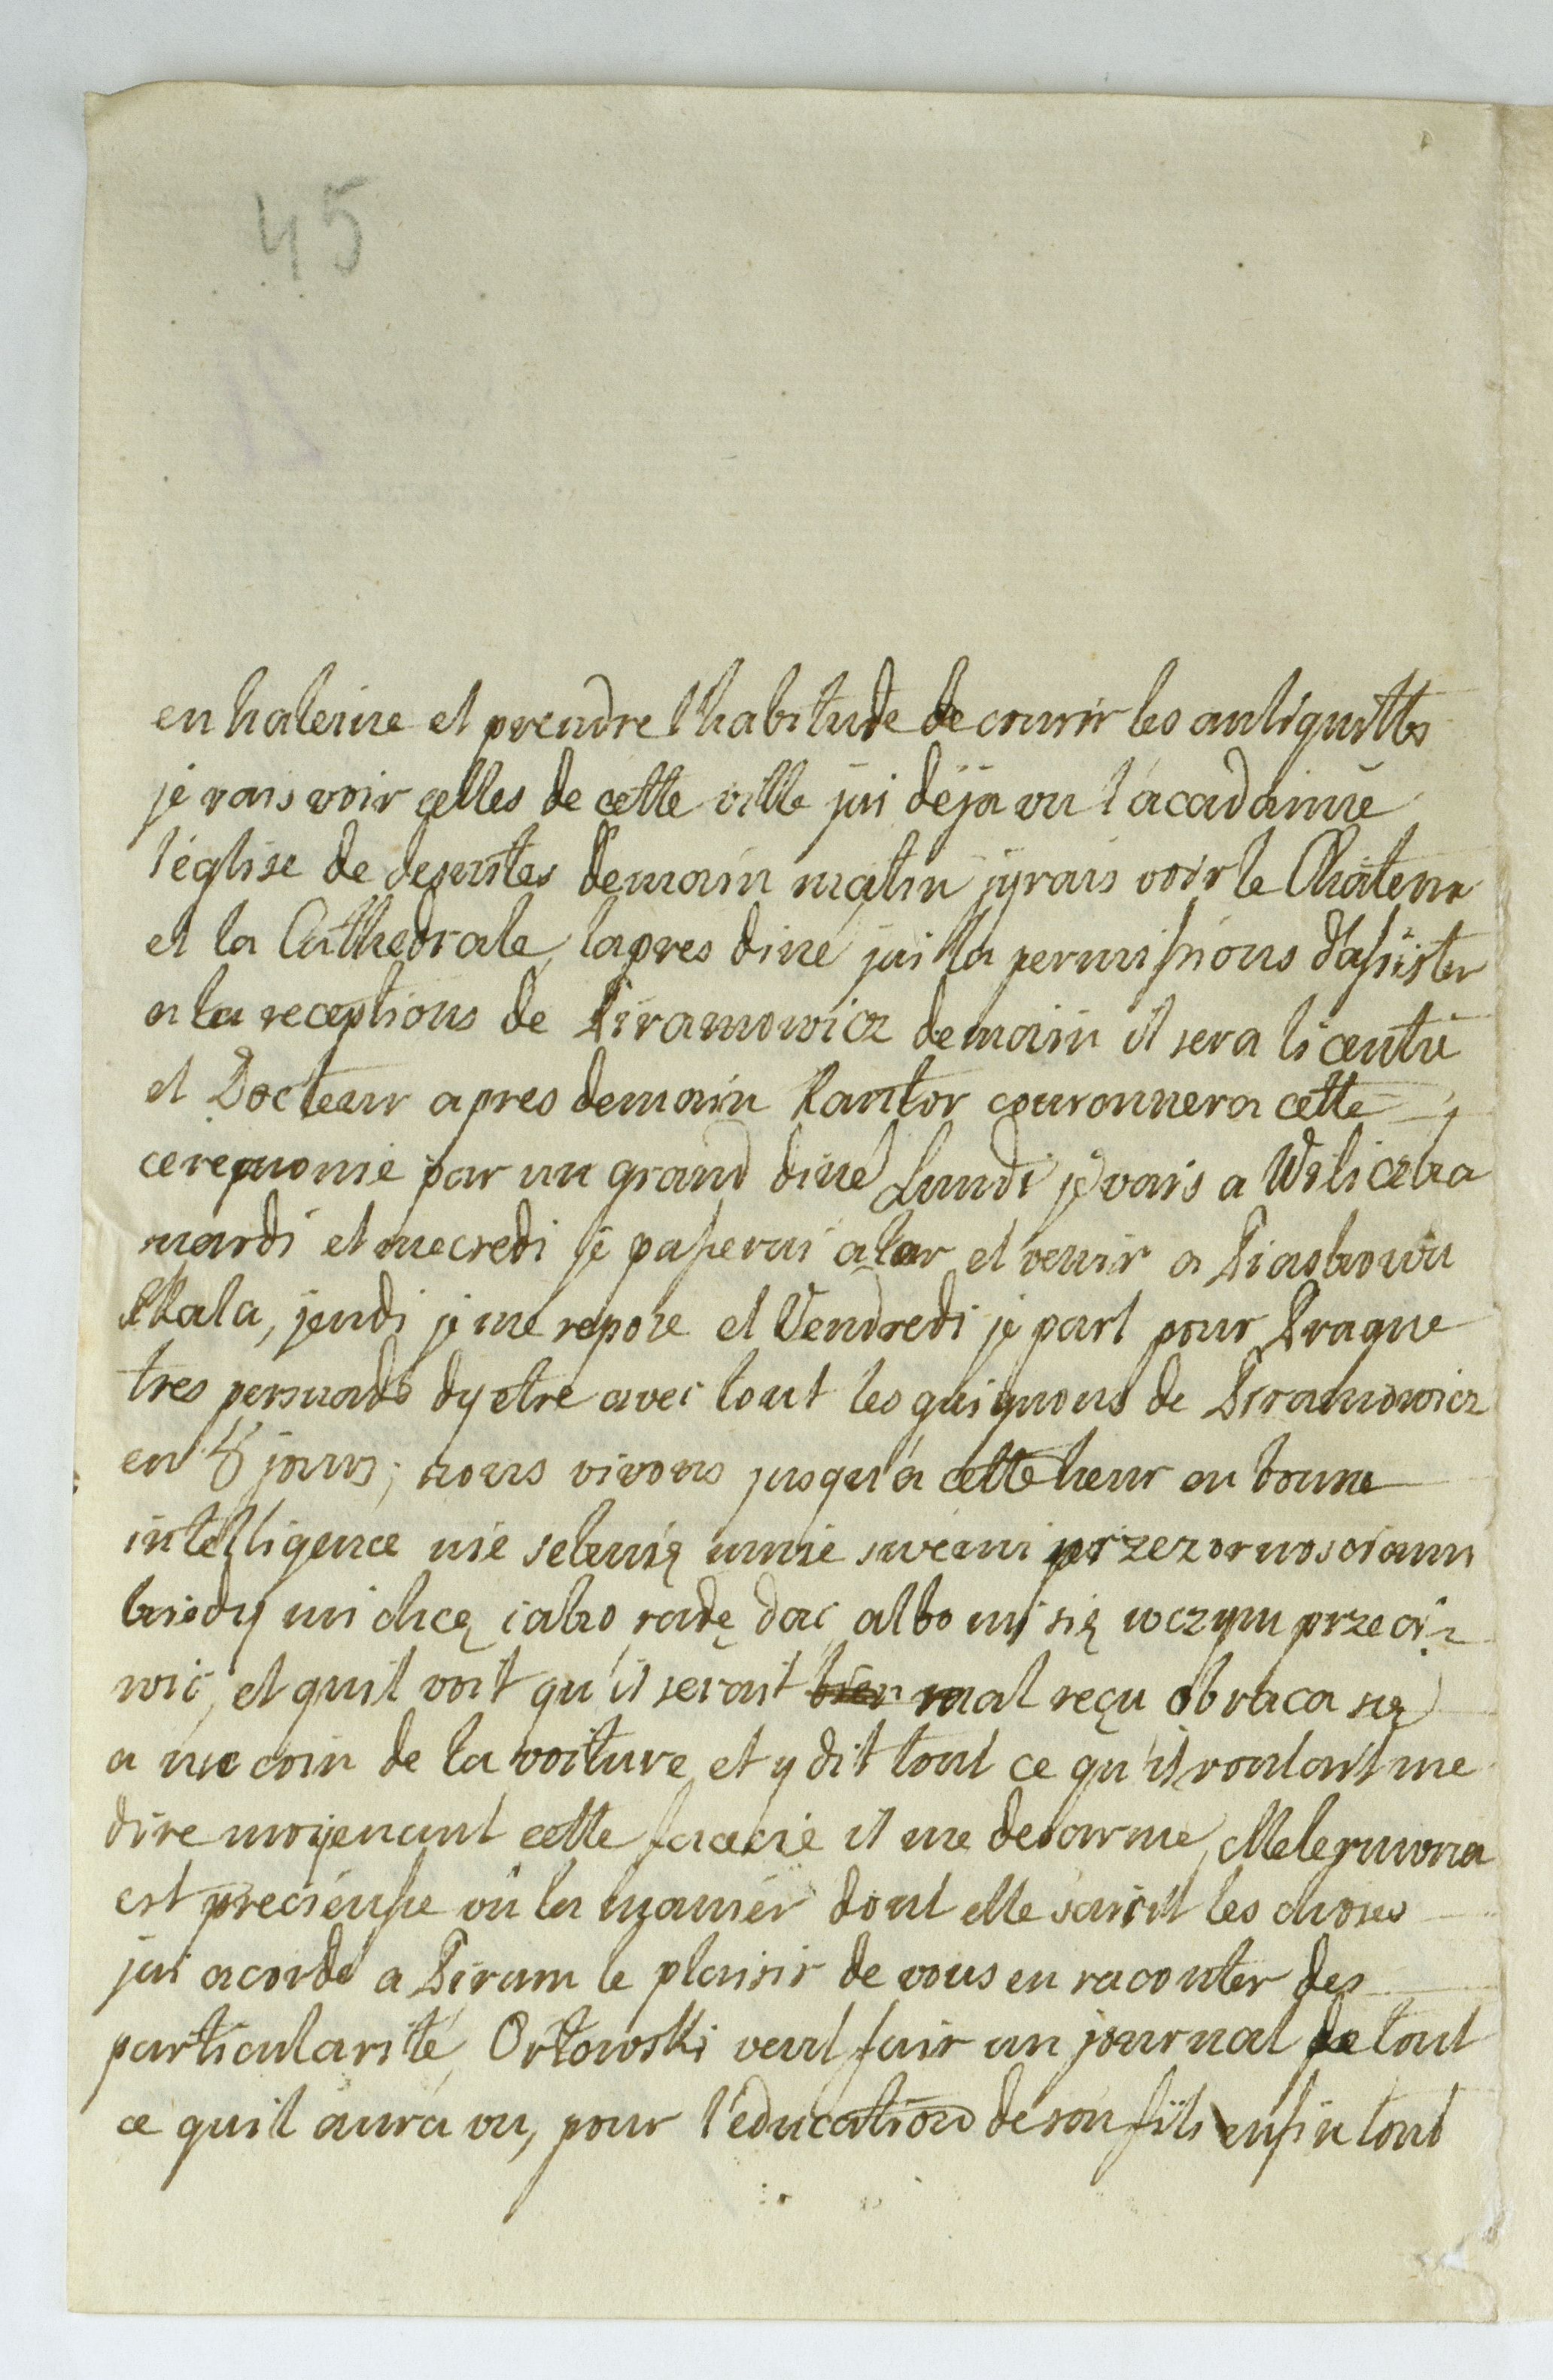 45
en haleine et prendre l'habitude de courir les antiquittés
je vais voir celles de cette ville jai déja vu l'acadamie
l'église de desuites demain matin jyrais voir le Château
et la Cathedrale, lapres diné jai la permissions d'assister
a la receptions de Piramowicz demain il sera licentié
et Docteur apres demain Kantor couronnera cette
ceremonie par un grand diné Lundi je vais a Wiliczka
mardi et mecredi je passerai alar et venir a Piaskowa
Skala, jeudi je me repose et Vendredi je part pour Prague
tres persuadé dy etre avec tout les guignons de Piramowicz
en 8 jours; nous vivons jusqu'a cette heur en bonne
intelligence nie selemię mnie swemi przezornosciami
kiedy mi chcę iako radę dac albo mi się wczym przeci-
wic, et quil voit qu'il serait bien mal reçu obraca się
a me coin de la voiture et y dit tout ce qu'il voulait me
dire moyenant cette facecie il me desarme, Melgrmowa
est precieusse vû la manier dont elle saisit les choses
jai acordé a Piram le plaisir de vous en raconter des
particularité, Orłowski veut fair un journal de tout
ce quil aura vu, pour l'education de son fils enfin tout